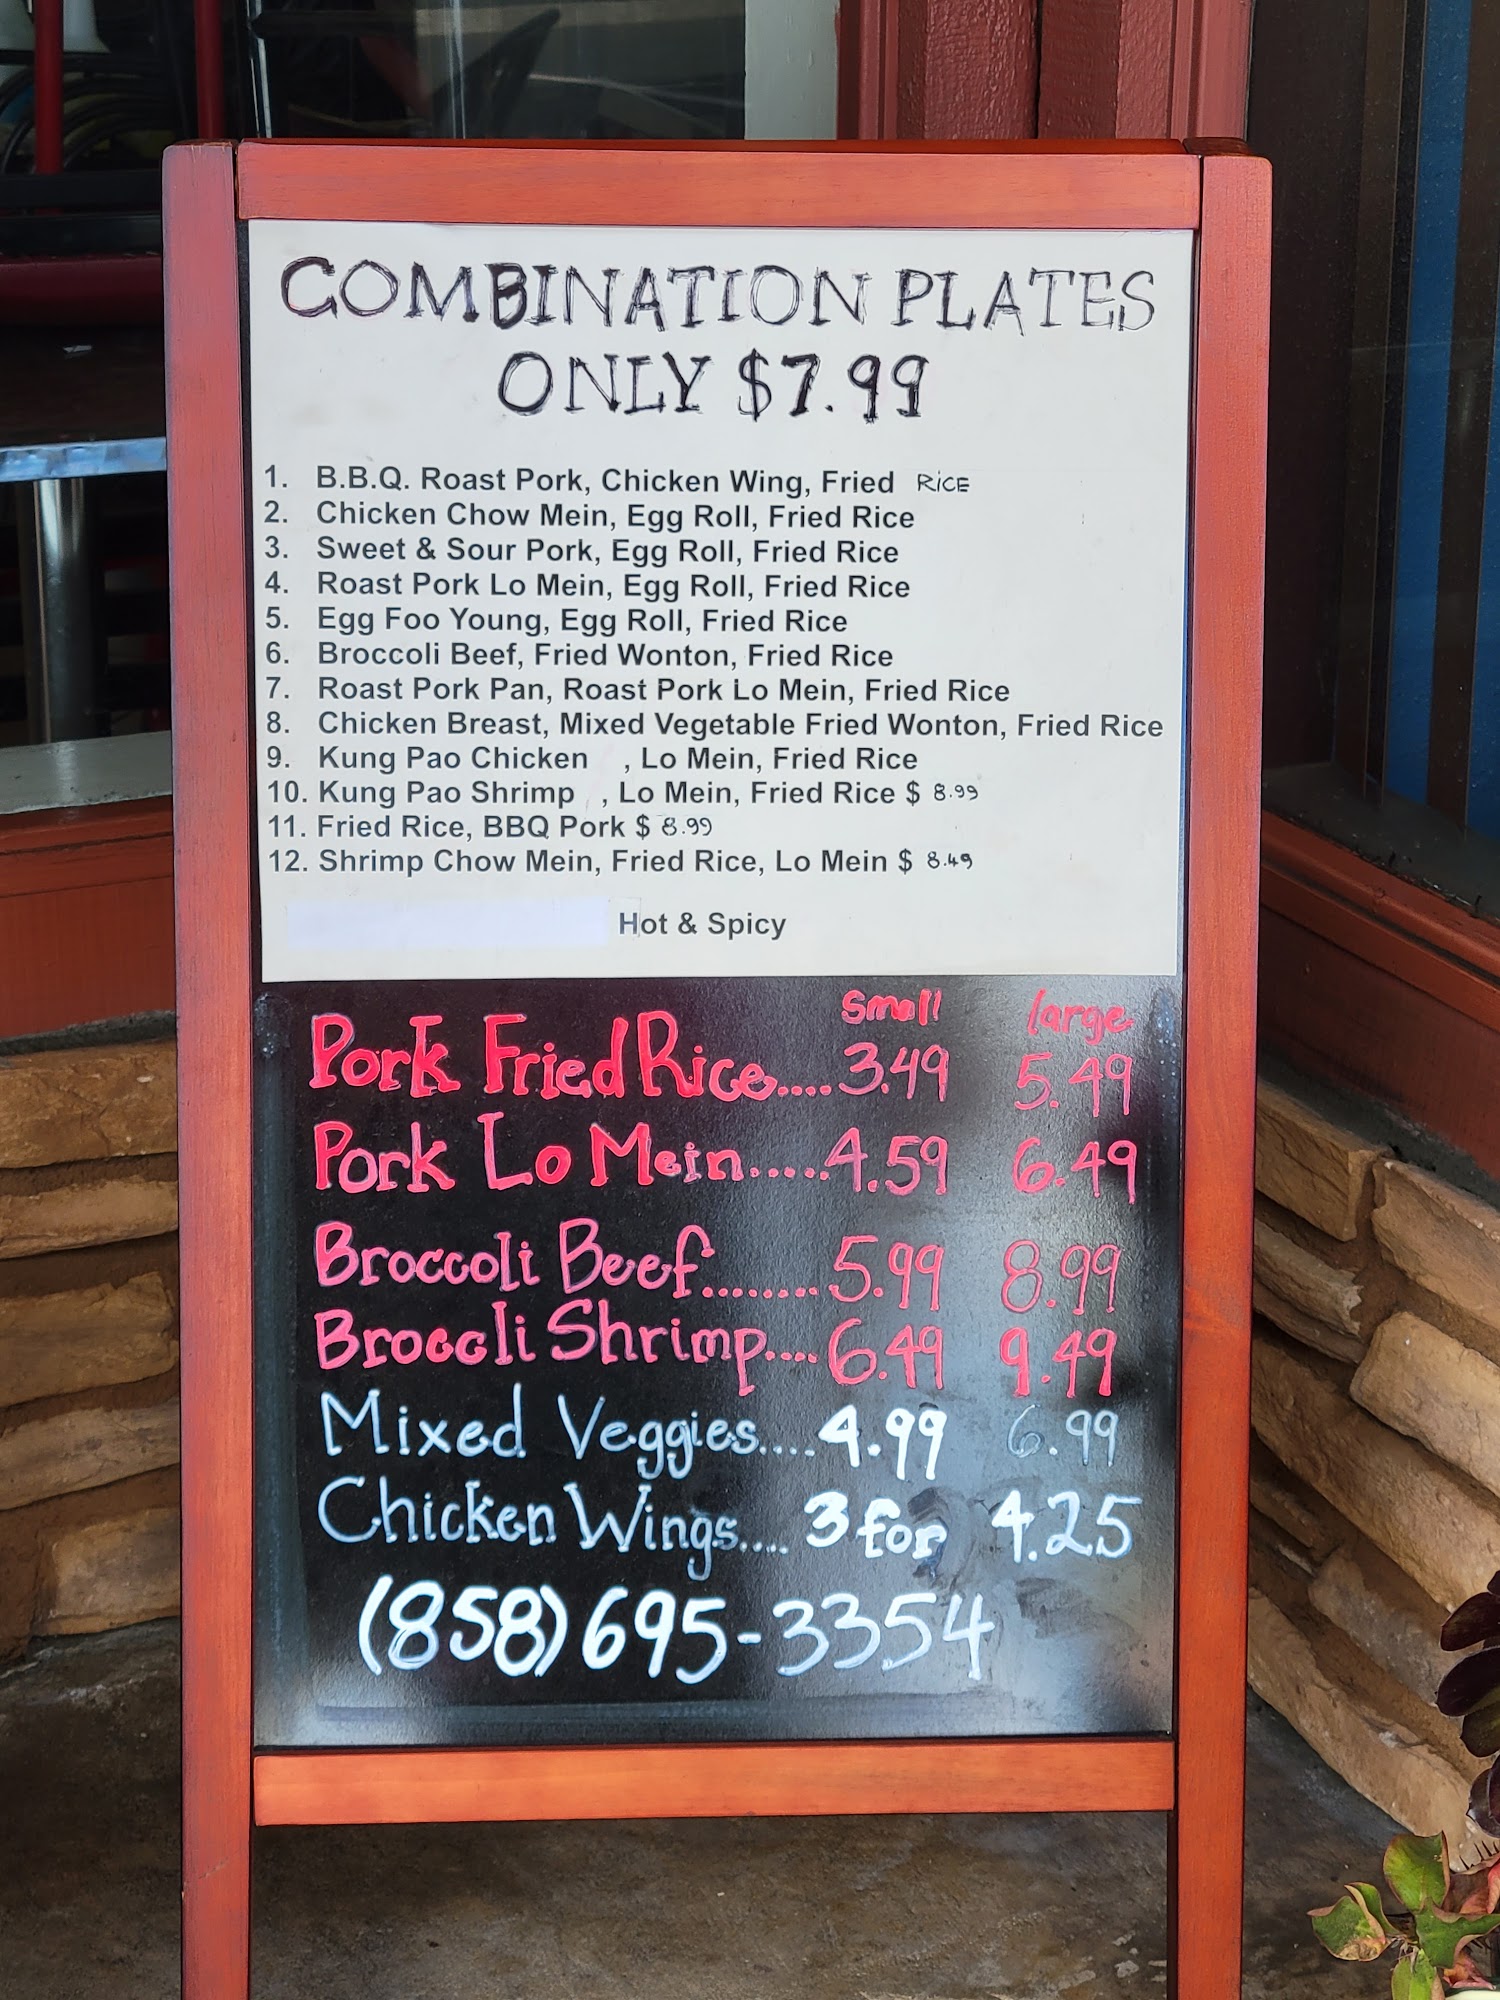 COMBINATION PLATES
ONLY $7.99
1. B.B.Q. Roast Pork, Chicken Wing, Fried RiCE
2. Chicken Chow Mein, Egg Roll, Fried Rice
3. Sweet & Sour Pork, Egg Roll, Fried Rice
4. Roast Pork Lo Mein, Egg Roll, Fried Rice
5. Egg Foo Young, Egg Roll, Fried Rice
6. Broccoli Beef, Fried Wonton, Fried Rice
7. Roast Pork Pan, Roast Pork Lo Mein, Fried Rice
8. Chicken Breast, Mixed Vegetable Fried Wonton, Fried Rice
9. Kung Pao Chicken , Lo Mein, Fried Rice
10. Kung Pao Shrimp , Lo Mein, Fried Rice $ 8.99
11. Fried Rice, BBQ Pork $ 8.99
12. Shrimp Chow Mein, Fried Rice, Lo Mein $ 8.49
Hot & Spicy
Small large
Pork Fried Rice....3.49 5.49
Pork Lo Mein.....4.59 6.49
Broccoli Beef........5.99 8.99
Broccli Shrimp....6.49 9.49
Mixed Veggies....4.99 6.99
Chicken Wings.... 3 for 4.25
(858)695-3354